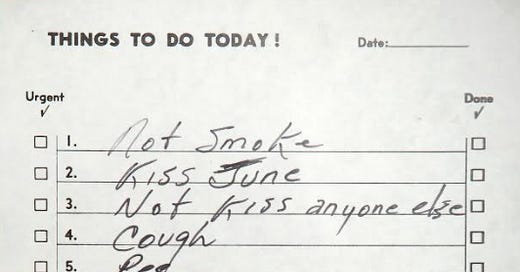 THINGS TO DO TODAY!
Date:
Urgent Done
1. Not Smoke
2. Kiss June
3. Not Kiss anyone else
4. Cough
5.